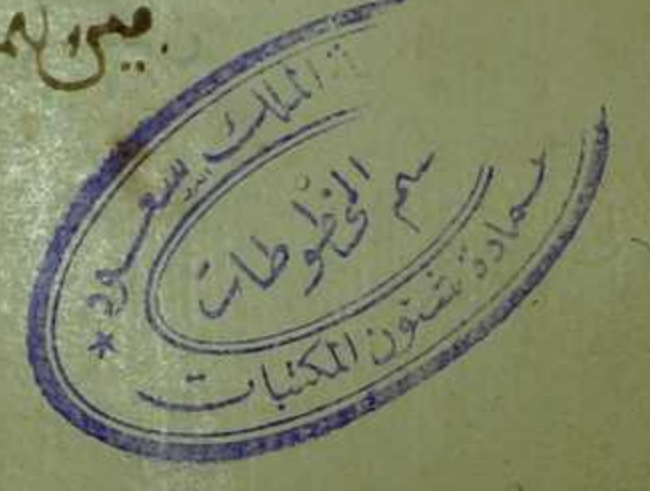 ة الملك سعود
سم المخطوطات
عمادة شئون المكتبات